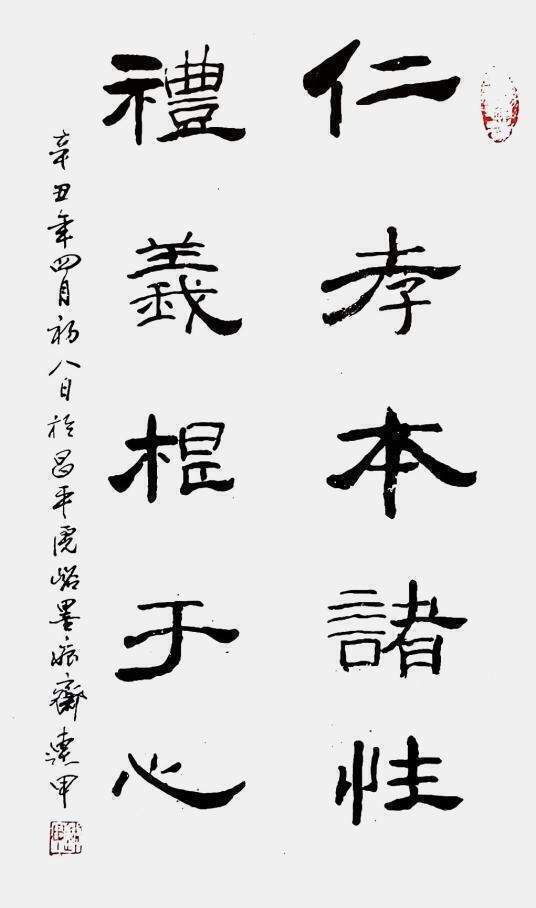 仁孝本諸性
禮義根于心
辛丑年四月初八日於昌平虎峪墨痕齋連甲